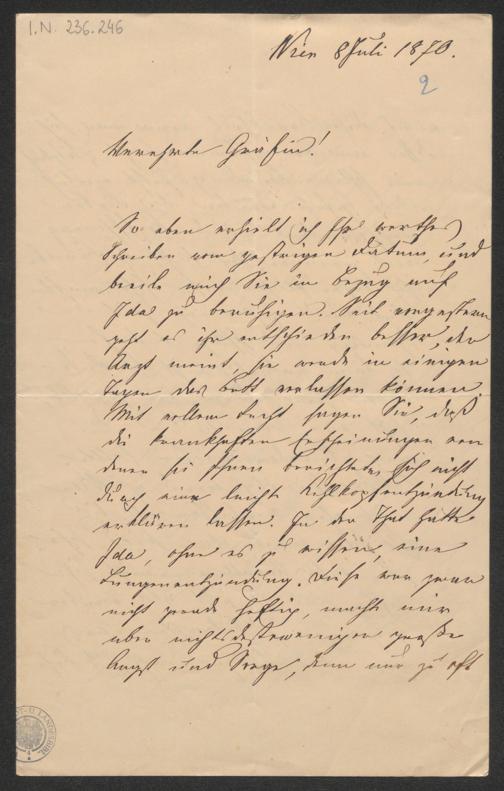 I.N. 236.246
Wien 8 Juli 1870.
2
Verehrte Gräfin!
So eben erhielt ich Ihr werthes
Schreiben vom gestrigen Datum, und
beeile mich Sie in Bezug auf
Ida zu beruhigen. Seit vorgestern
geht es ihr entschieden besser, der
Arzt meint, sie werde in einigen
Tagen das Bett verlassen können.
Mit vollem Recht sagen Sie, daß
die krankhaften Erscheinungen von
denen sie Ihnen berichtete, sich nicht
durch eine leichte Kehlkopfentzündung
erklären lassen. In der That hatte
Ida, ohne es zu wissen, eine
Lungenentzündung. Diese war zwar
nicht gerade heftig, machte mir
aber nichtsdestoweniger große
Angst und Sorge, denn nur zu oft